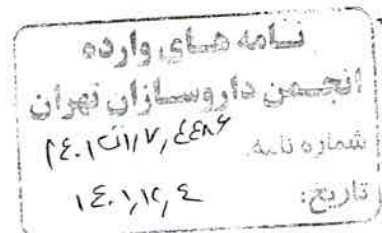 نامه های وارده
انجمن داروسازان تهران
شماره نامه:
تاریخ: ۱۴۰۱,۱۲,۴